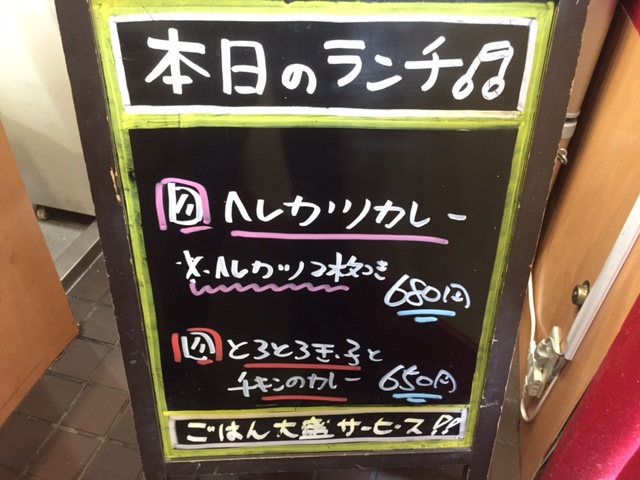 本日のランチ♫
ヘレカツカレー
※ヘレカツ2枚つき
680円
とろとろ玉子と
チキンのカレー 650円
ごはん大盛サービス!!